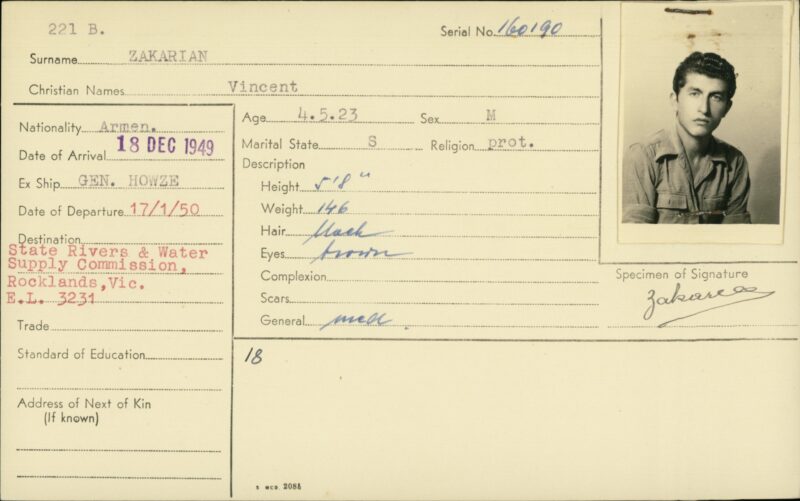 221 B.
Serial No. 160190
Surname ZAKARIAN
Christian Names Vincent
Nationality Armen.
Date of Arrival 18 DEC 1949
Ex Ship GEN. HOWZE
Date of Departure 17/1/50
Destination
State Rivers & Water
Supply Commission,
Rocklands, Vic.
E.L. 3231
Trade
Standard of Education
Address of Next of Kin
(If known)
Age 4.5.23 Sex M
Marital State S Religion prot.
Description
Height 5'8"
Weight 146
Hair black
Eyes brown
Complexion
Scars
General med.
18
Specimen of Signature
2085